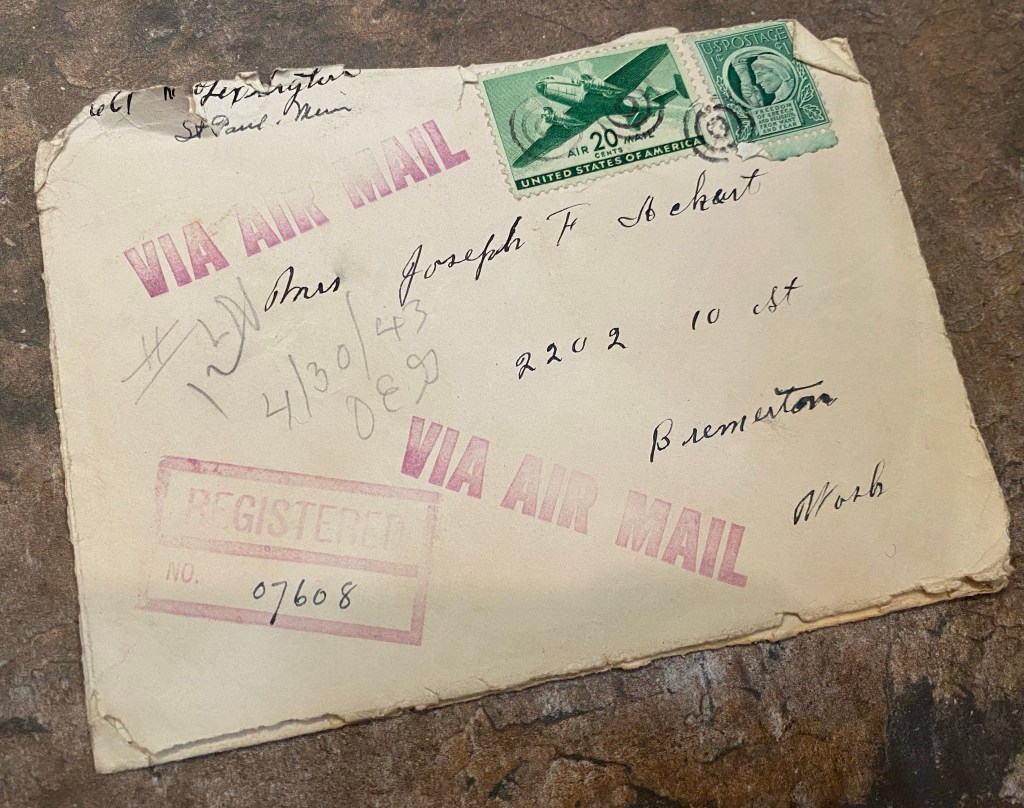 661 N Lexington
St Paul. Minn
US POSTAGE
1¢ 1¢
FREEDOM
OF SPEECH
AND
AND FEAR
AIR 20 MAIL
CENTS
UNITED STATES OF AMERICA
VIA AIR MAIL
Mrs Joseph F
2202 10 St
Bremerton
Wash
4/30/43
VIA AIR MAIL
REGISTERED
NO.
07608